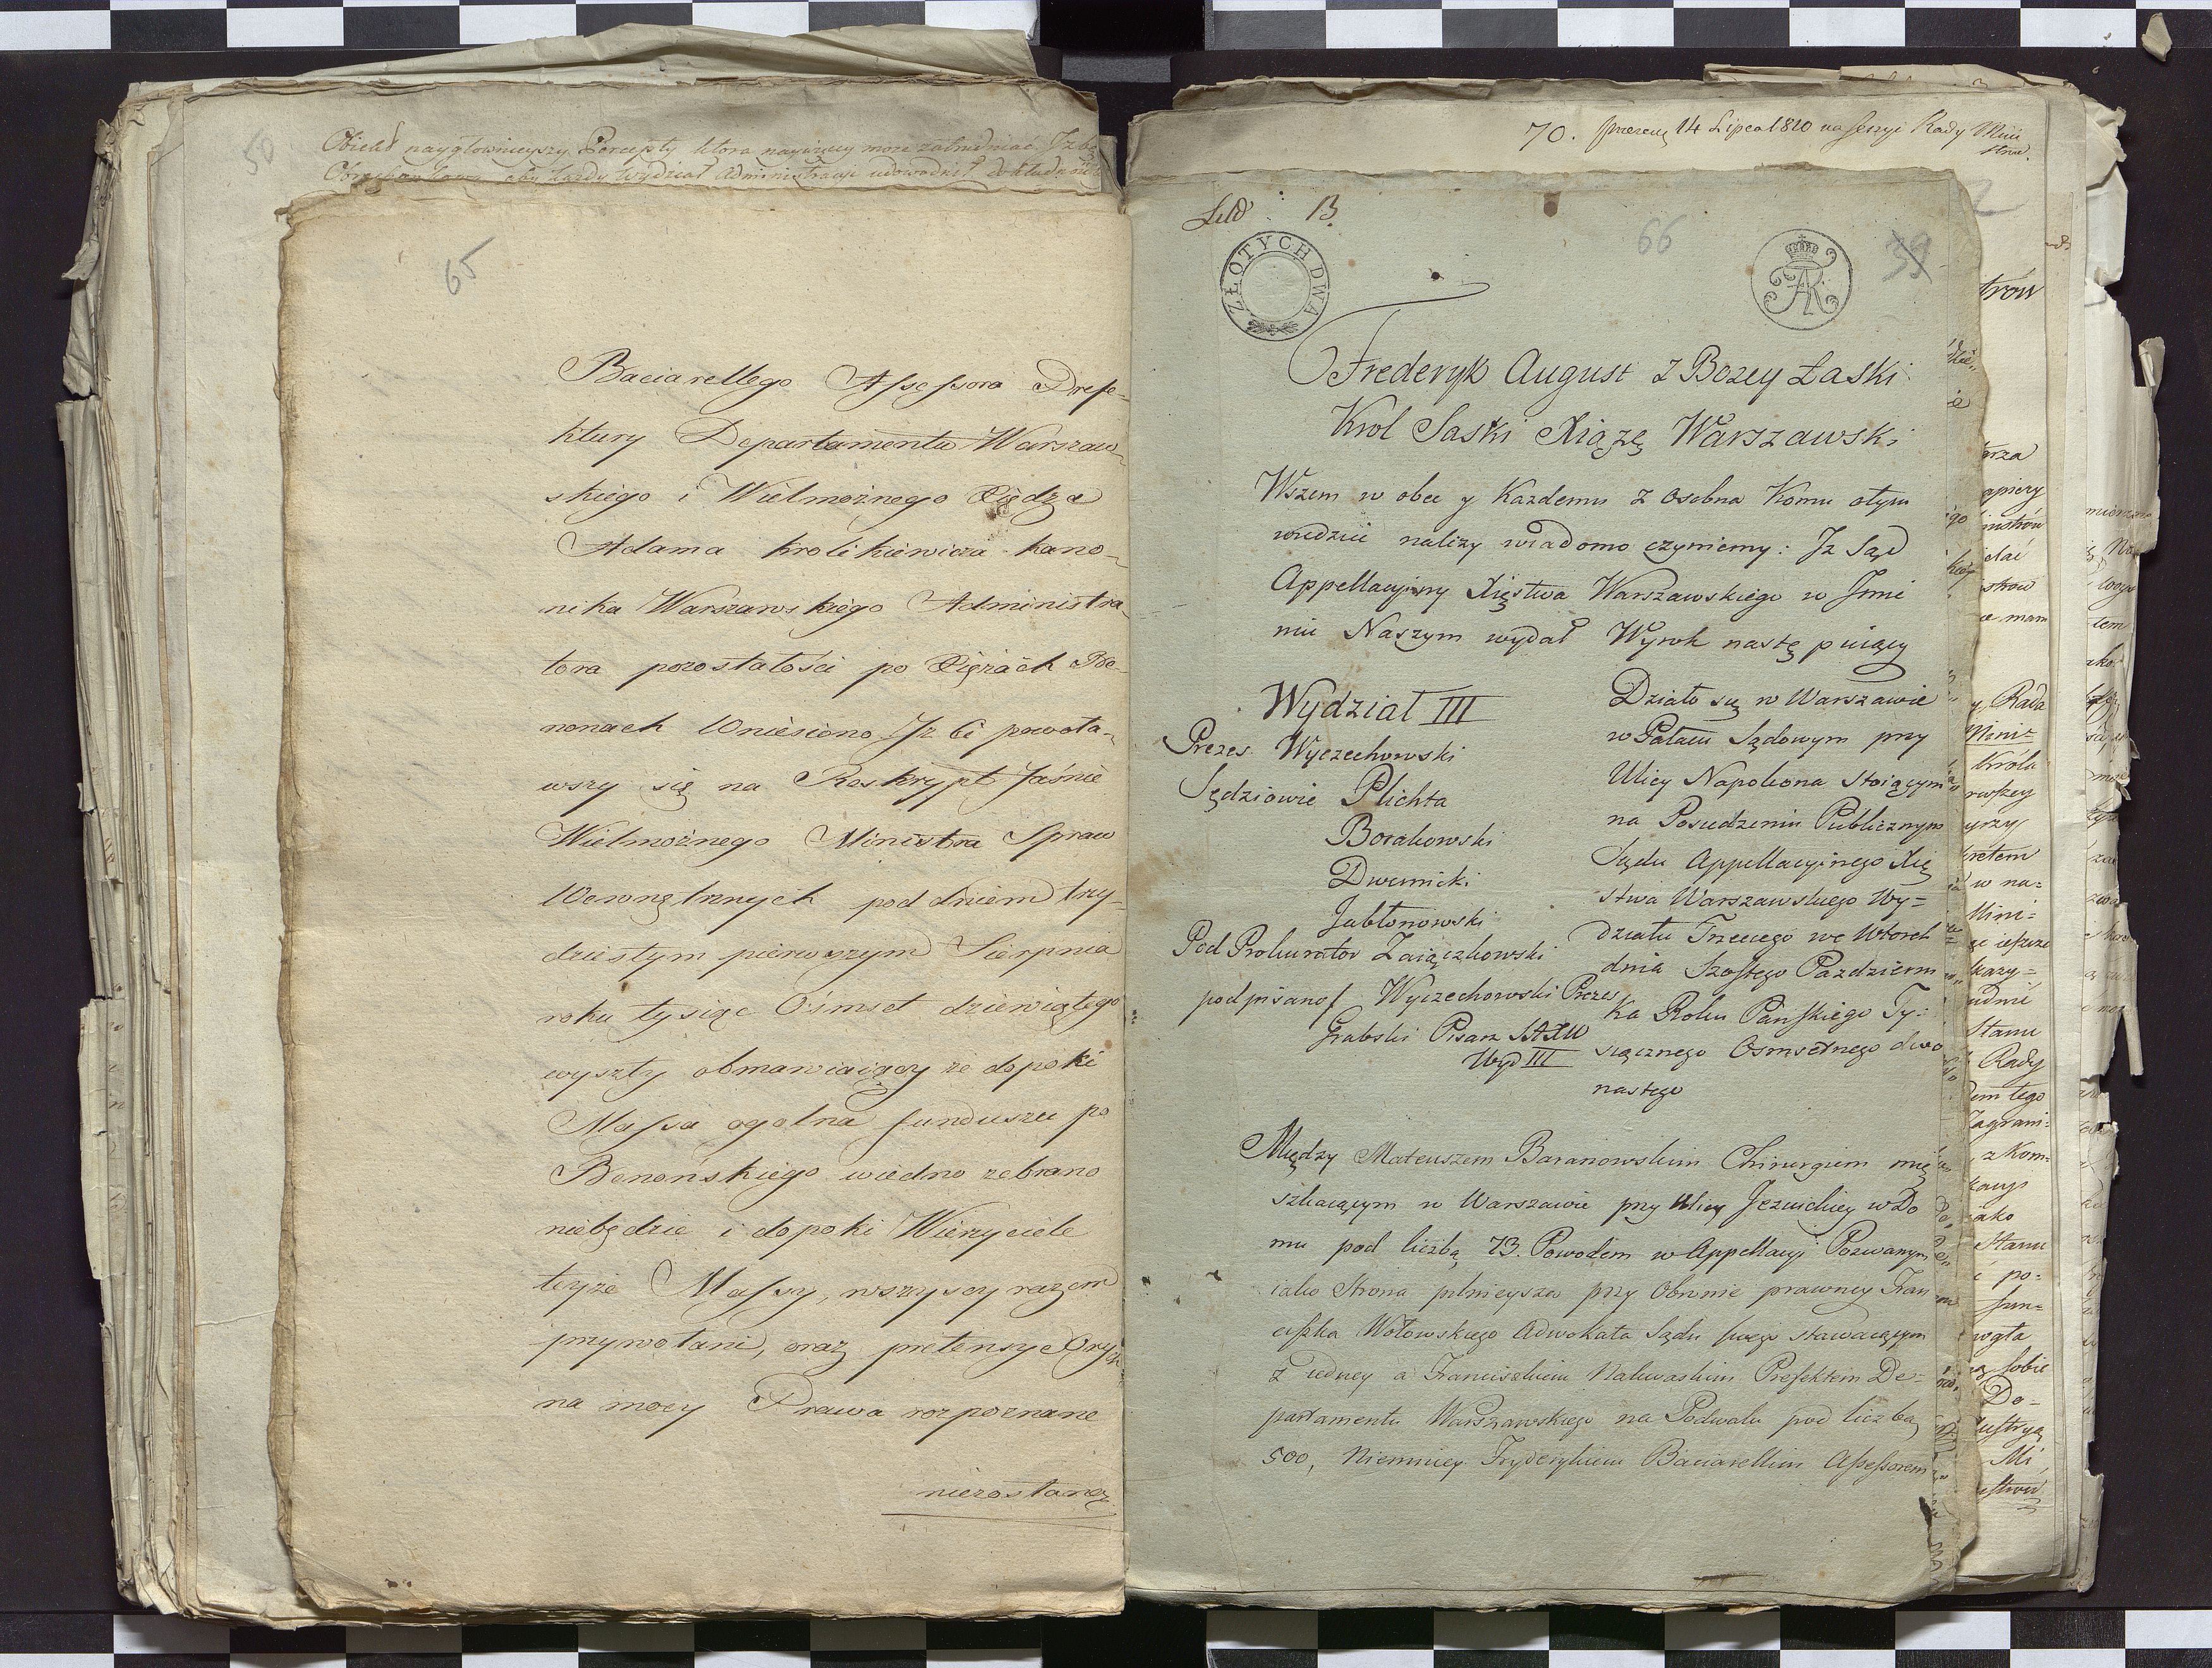 50
Obiekt naygłownieyszy Percepty ktora nayżywey może zatrudniać Izbę
Obrachunkową aby każdy Wydział Administracyi udowodnił dokładnie
65
Baciarellego Assessora Prefe-
ktury Departamentu Warszaw-
skiego i Wielmożnego Xiędza
Adama Krolikiewicza kano-
nika Warszawskiego Administra-
tora pozostałości po Xiężach Be-
nonach Wniesiono Iż Ci powoła-
wszy się na Reskrypt Jaśnie
Wielmożnego Ministra Spraw
Wewnętrznych pod dniem trzy-
dziestym pierwszym Sierpnia
roku tysiąc Osmset dziewiątego
wyszły obmawiaiący że dopoki
Massa ogolna funduszu po
Benońskiego wiedno zebrano
niebędzie i dopoki Wierzyciele
teyże Massy, wszyscy razem
przywołani, oraz pretensye Onych
na mocy Prawa rozpoznane
niezostaną
70. prezent 14 Lipca 1810 na Sessyi Rady Mini
strów.
Litt: B.
66
39
ZŁOTYCH DWA
FAR
Frederyk August z Bozey Łaski
Krol Saski Xiążę Warszawski
Wszem w obec y Kazdemu z osobna Komu otym
wiedzieć nalizy wiadomo czyniemy: Iz Sąd
Appellacyiny Xięstwa Warszawskiego w Imie
niu Naszym wydał Wyrok następuiący
Wydział III
Prezes Wyczechowski
Sędziowie Plichta
Borakowski
Dwernicki
Jabłonowski
Pod Prokurator Zaiączkowski
podpisano/ Wyczechowski Prezes
Grabski Pisarz SAXW
Wyd III
Działo się w Warszawie
w Pałacu Sądowym przy
Ulicy Napoleona Stoiącym
na Posiedzeniu Publicznym
Sądu Appellacyinego Xię
stwa Warszawskiego Wy=
działu Trzeciego we Wtorek
dnia Szostego Pazdziern
ka Roku Pańskiego Ty=
siącznego Osmsetnego dwo
nastego
Między Mateuszem Baranowskim Chirurgiem mię
szkaiącym w Warszawie przy Ulicy Jezuickiey w Do
mu pod liczbą 73. Powodem w Appellacyi Pozwanym
iako Strona pilnieysza przy Obronie prawney Fran
ciszka Wołowskiego Adwokata Sądu swego stawaiącym
z iedney a Franciszkiem Nakwaskim Prefektem De=
partamentu Warszawskiego na Podwalu pod liczbą
500, Niemniey Fryderykiem Baciarellim Assessorem